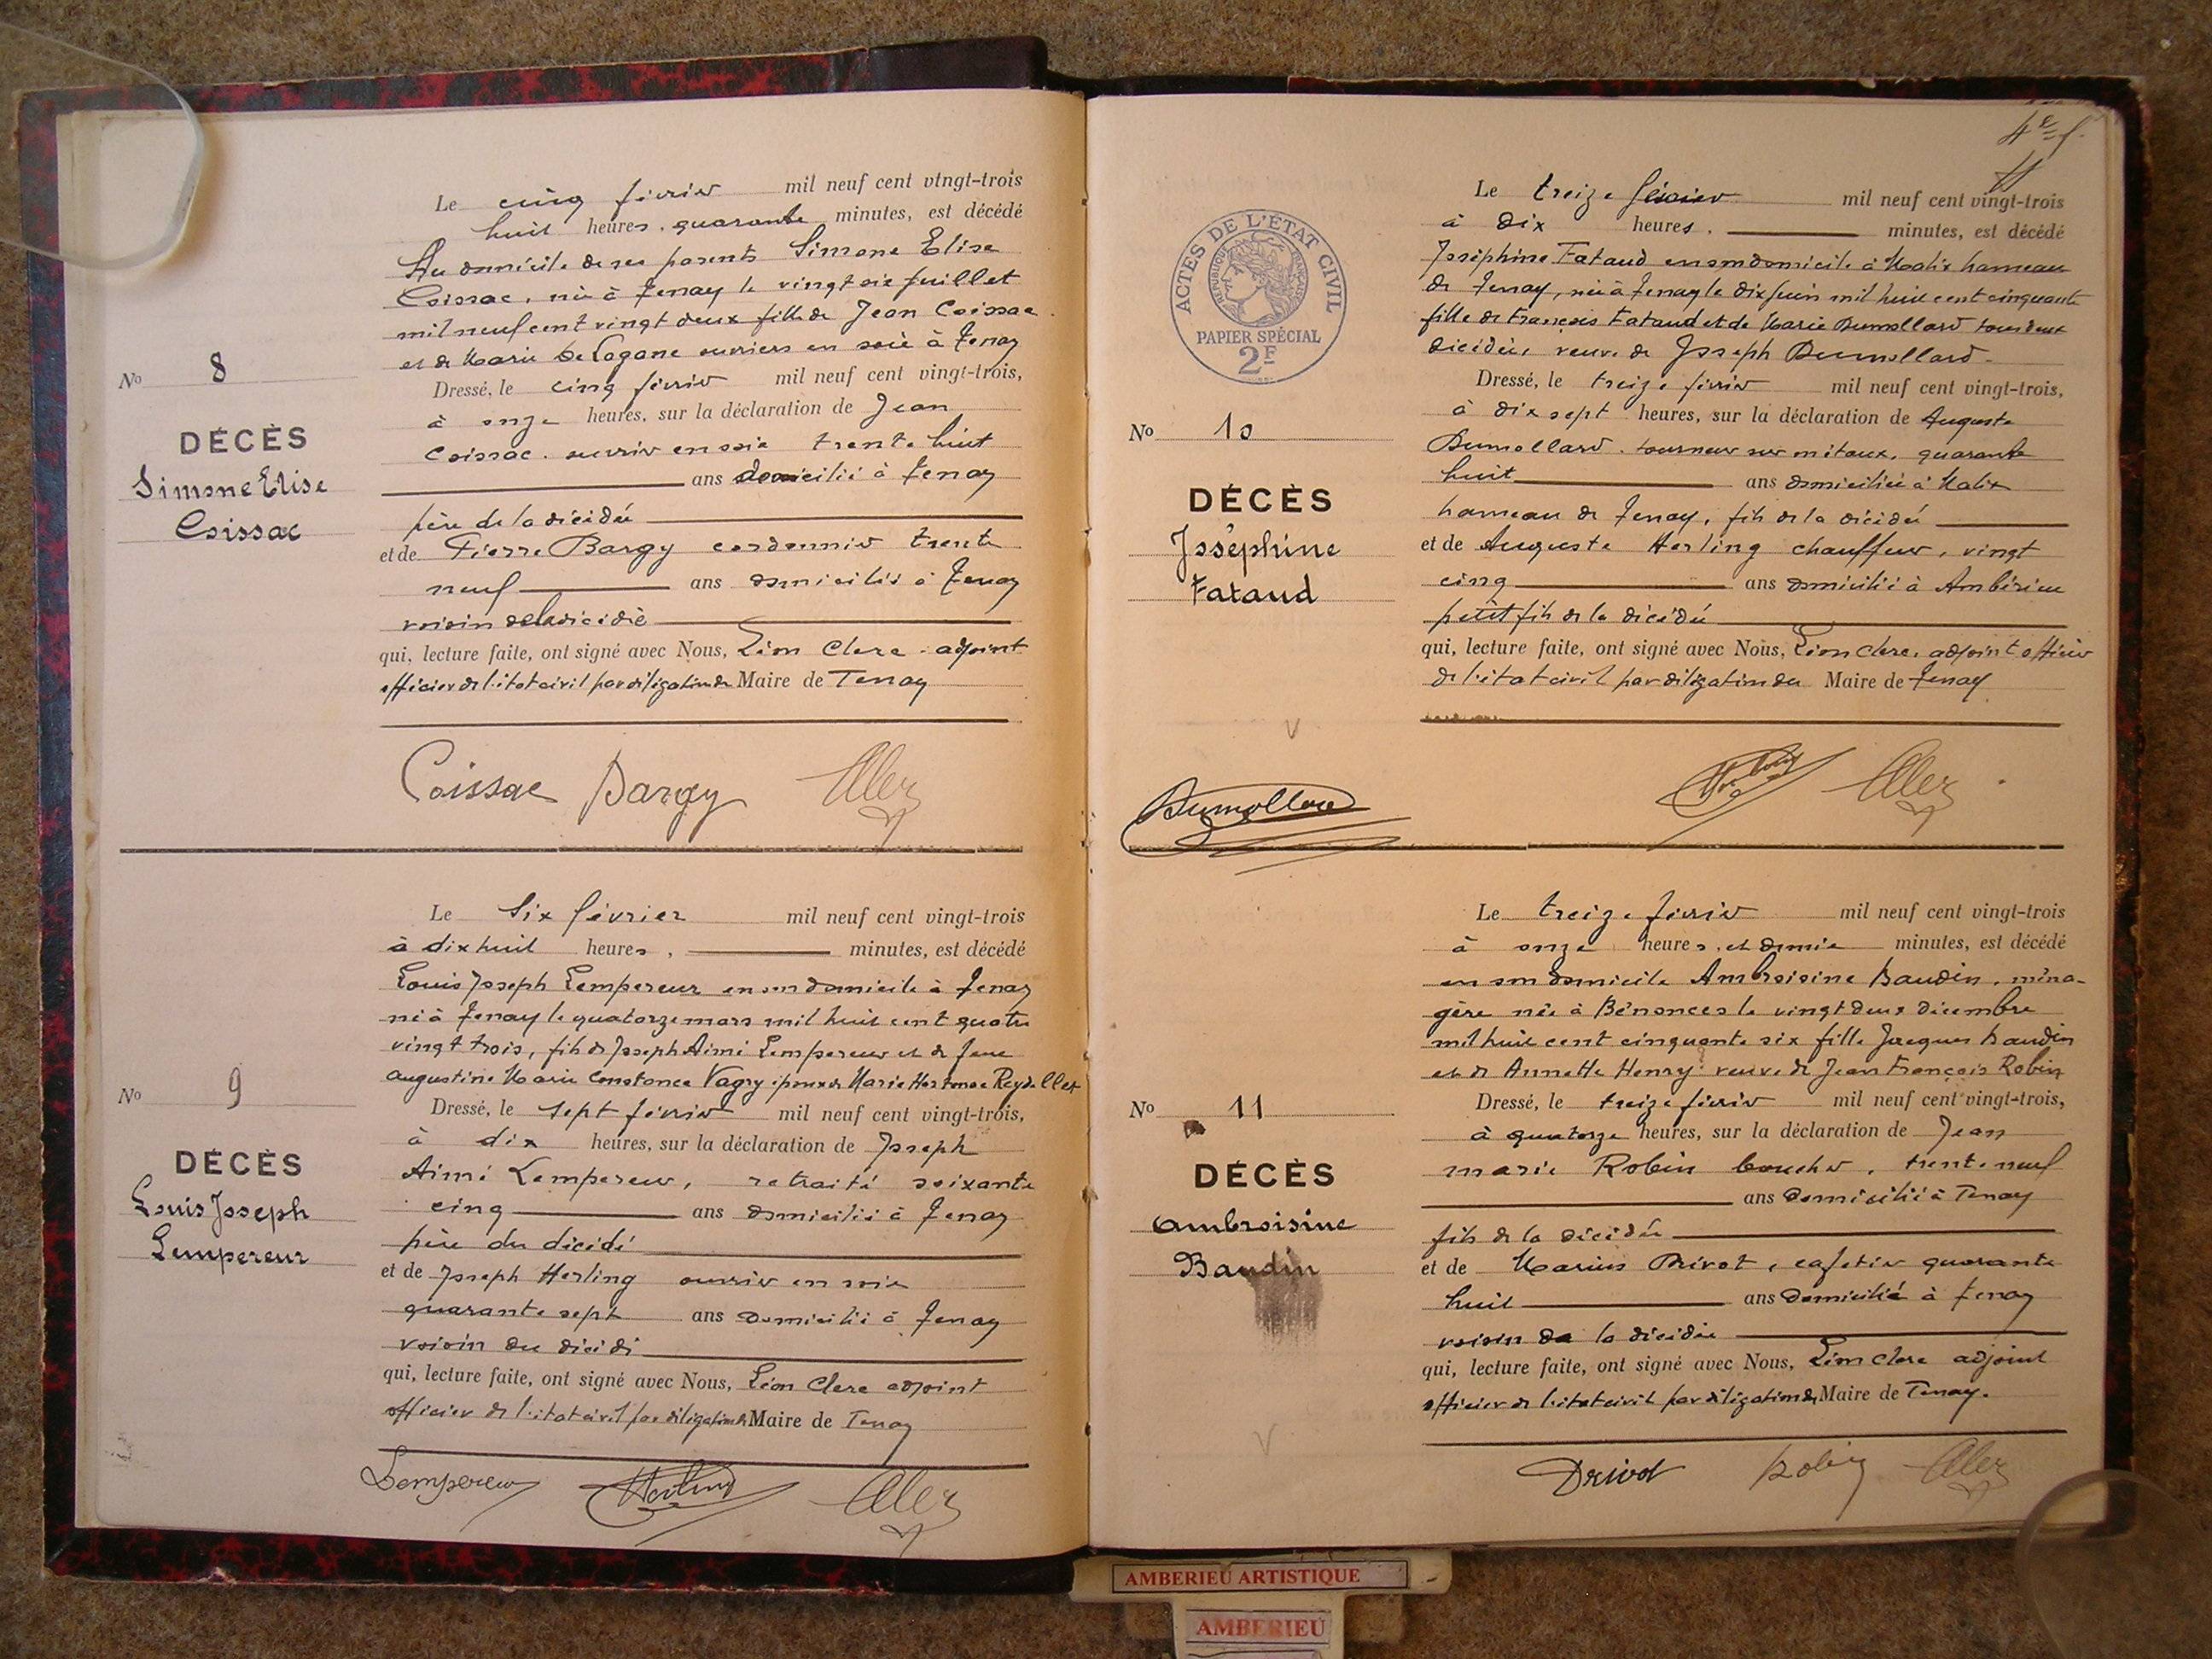 Le cinq février mil neuf cent vingt-trois
huit heures, quarante minutes, est décédé
Au domicile de ses parents Simone Elise
Coissac, née à Tenay le vingt six Juillet
mil neuf cent vingt deux fille de Jean Coissac
et de Marie De Lagane ouvriers en soie à Tenay
Dressé, le cinq février mil neuf cent vingt-trois,
à onze heures, sur la déclaration de Jean
Coissac. ouvrier en soie trente huit
ans domicilié à Tenay
père de la décédée
et de Pierre Bargy cordonnier trente
neuf ans domicilié à Tenay
voisin de la décédée
qui, lecture faite, ont signé avec Nous, Léon Clerc adjoint
officier de l'état civil par délégation du Maire de Tenay
No 8
DÉCÈS
Simone Elise
Coissac
Coissac Bargy
Le Six février mil neuf cent vingt-trois
à dix huit heures, minutes, est décédé
Louis Joseph Lempereur en son domicile à Tenay
né à Tenay le quatorze mars mil huit cent quatre
vingt trois, fils de Joseph Aimé Lempereur et de
augustine Marie Constance Vagry époux de Marie Hortense Reydellet
Dressé, le sept février mil neuf cent vingt-trois,
à dix heures, sur la déclaration de Joseph
Aimé Lempereur, retraité soixante
cinq ans domicilié à Tenay
père du décédé
et de Joseph Herling ouvrier en soie
quarante sept ans domicilié à Tenay
voisin du décédé
qui, lecture faite, ont signé avec Nous, Léon Clerc adjoint
officier de l'état civil par délégation du Maire de Tenay
No 9
DÉCÈS
Louis Joseph
Lempereur
Lempereur Herling
4e f.
ACTES DE L'ÉTAT CIVIL
RÉPUBLIQUE FRANÇAISE
PAPIER SPÉCIAL
2F
Le treize février mil neuf cent vingt-trois
à dix heures. minutes, est décédé
Joséphine Fataud en son domicile à Malix hameau
de Tenay, née à Tenay le dix Juin mil huit cent cinquante
fille de François Fataud et de Marie Dumollard tous deux
décédés, veuve de Joseph Dumollard
Dressé, le treize février mil neuf cent vingt-trois,
à dix sept heures, sur la déclaration de Auguste
Dumollard. tourneur sur métaux, quarante
huit ans domicilié à Malix
hameau de Tenay, fils de la décédée
et de Auguste Herling chauffeur, vingt
cinq ans domicilié à Ambérieu
petit fils de la décédée
qui, lecture faite, ont signé avec Nous, Léon Clerc, adjoint officier
de l'état civil par délégation du Maire de Tenay
No 10
DÉCÈS
Joséphine
Fataud
Dumollard
Le treize février mil neuf cent vingt-trois
à onze heures, et demie minutes, est décédé
en son domicile Ambroisine Baudin, ména-
gère née à Bénonces le vingt deux décembre
mil huit cent cinquante six fille Jacques Baudin
et de Annette Henry veuve de Jean François Robin
Dressé, le treize février mil neuf cent vingt-trois,
à quatorze heures, sur la déclaration de Jean
marie Robin boucher, trente neuf
ans domicilié à Tenay
fils de la décédée
et de Marius Drivot, cafetier quarante
huit ans domicilié à Tenay
voisin de la décédée
qui, lecture faite, ont signé avec Nous, Léon Clerc adjoint
officier de l'état civil par délégation du Maire de Tenay.
No 11
DÉCÈS
Ambroisine
Baudin
Drivot Robin
AMBERIEU ARTISTIQUE
AMBERIEU